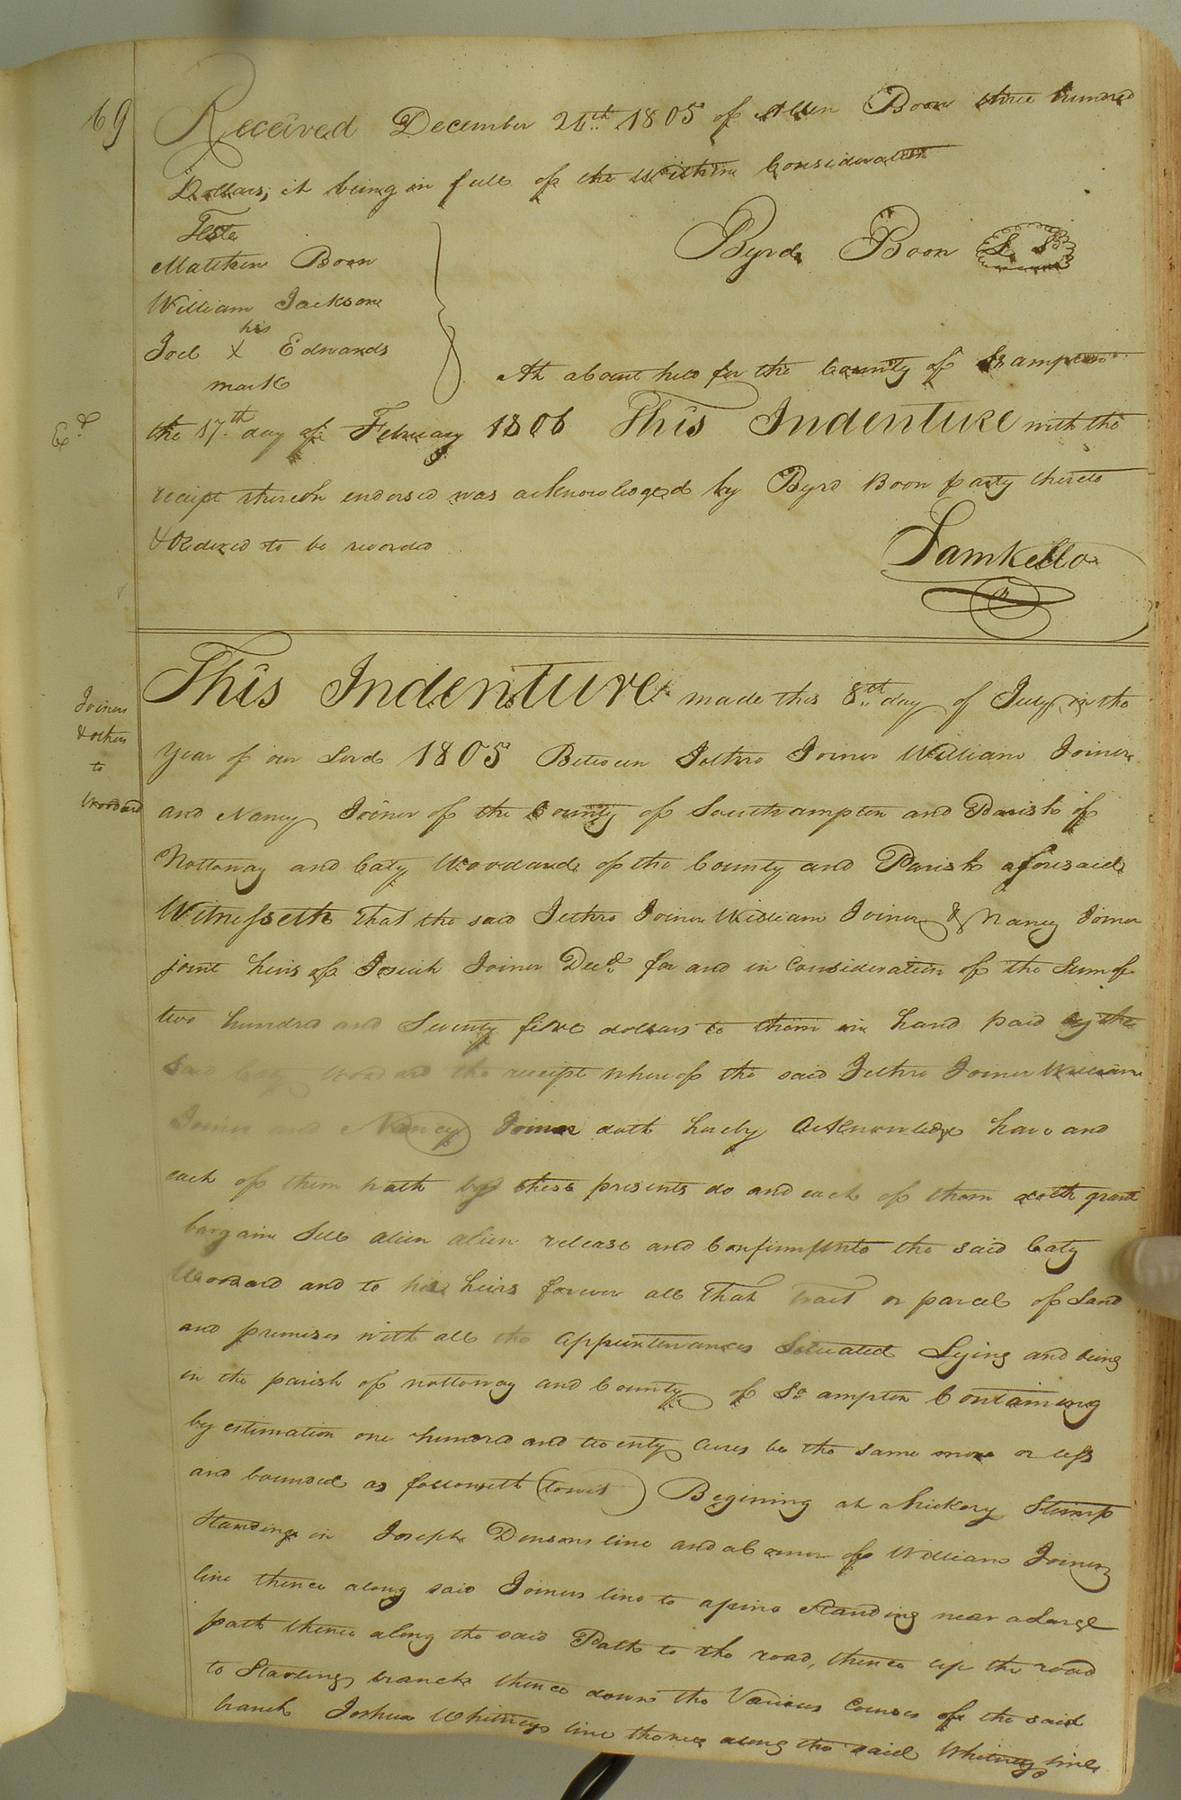 69
Received December 26th 1805 of Allen Boon three hundred
Dollars, it being in full of the within Consideration
Teste
Matthew Boon
William Jackson
Byrd Boon L S
his
Joel X Edwards
mark
At a bount held for the County of So ampton
Exd
the 17th day of February 1806 This Indenture with the
receipt thereon endorsed was acknowledged by Byrd Boon party thereto
& Ordered to be recorded
Saml Kello
Joiners
& others
to
Woodard
This Indenture made this 8th day of July in the
Year of our Lord 1805 Between Jethro Joiner William Joiner
and Nancy Joiner of the County of Southampton and Parish of
Nottoway and Caty Woodard of the County and Parish aforesaid
Witnesseth That the said Jethro Joiner William Joiner & Nancy Joiner
joint heirs of Josiah Joiner Decd for and in Consideration of the Sum of
two hundred and Seventy five dollars to them in hand paid by the
said Caty Woodard the receipt whereof the said Jethro Joiner William
Joiner and Nancy Joiner doth hereby Acknowledge have and
each of them hath by these presents do and each of them doth grant
bargain Sell alien alien release and Confirm unto the said Caty
Woodard and to heirs forever all that tract or parcel of Land
and premises with all the appurtenances Situated Lying and being
in the parish of nottoway and County of So ampton Containing
by estimation one hundred and twenty Acres be the same more or less
and bounded as followeth (towit) Begining at a hickory Stump
Standing in Joseph Densons line and a Corner of William Joiners
line thence along said Joiners line to a pine Standing near a Large
path thence along the said Path to the road, thence up the road
to Starling branch thence down the Various Courses of the said
branch Joshua Whitneys line thence along the said Whitneys line